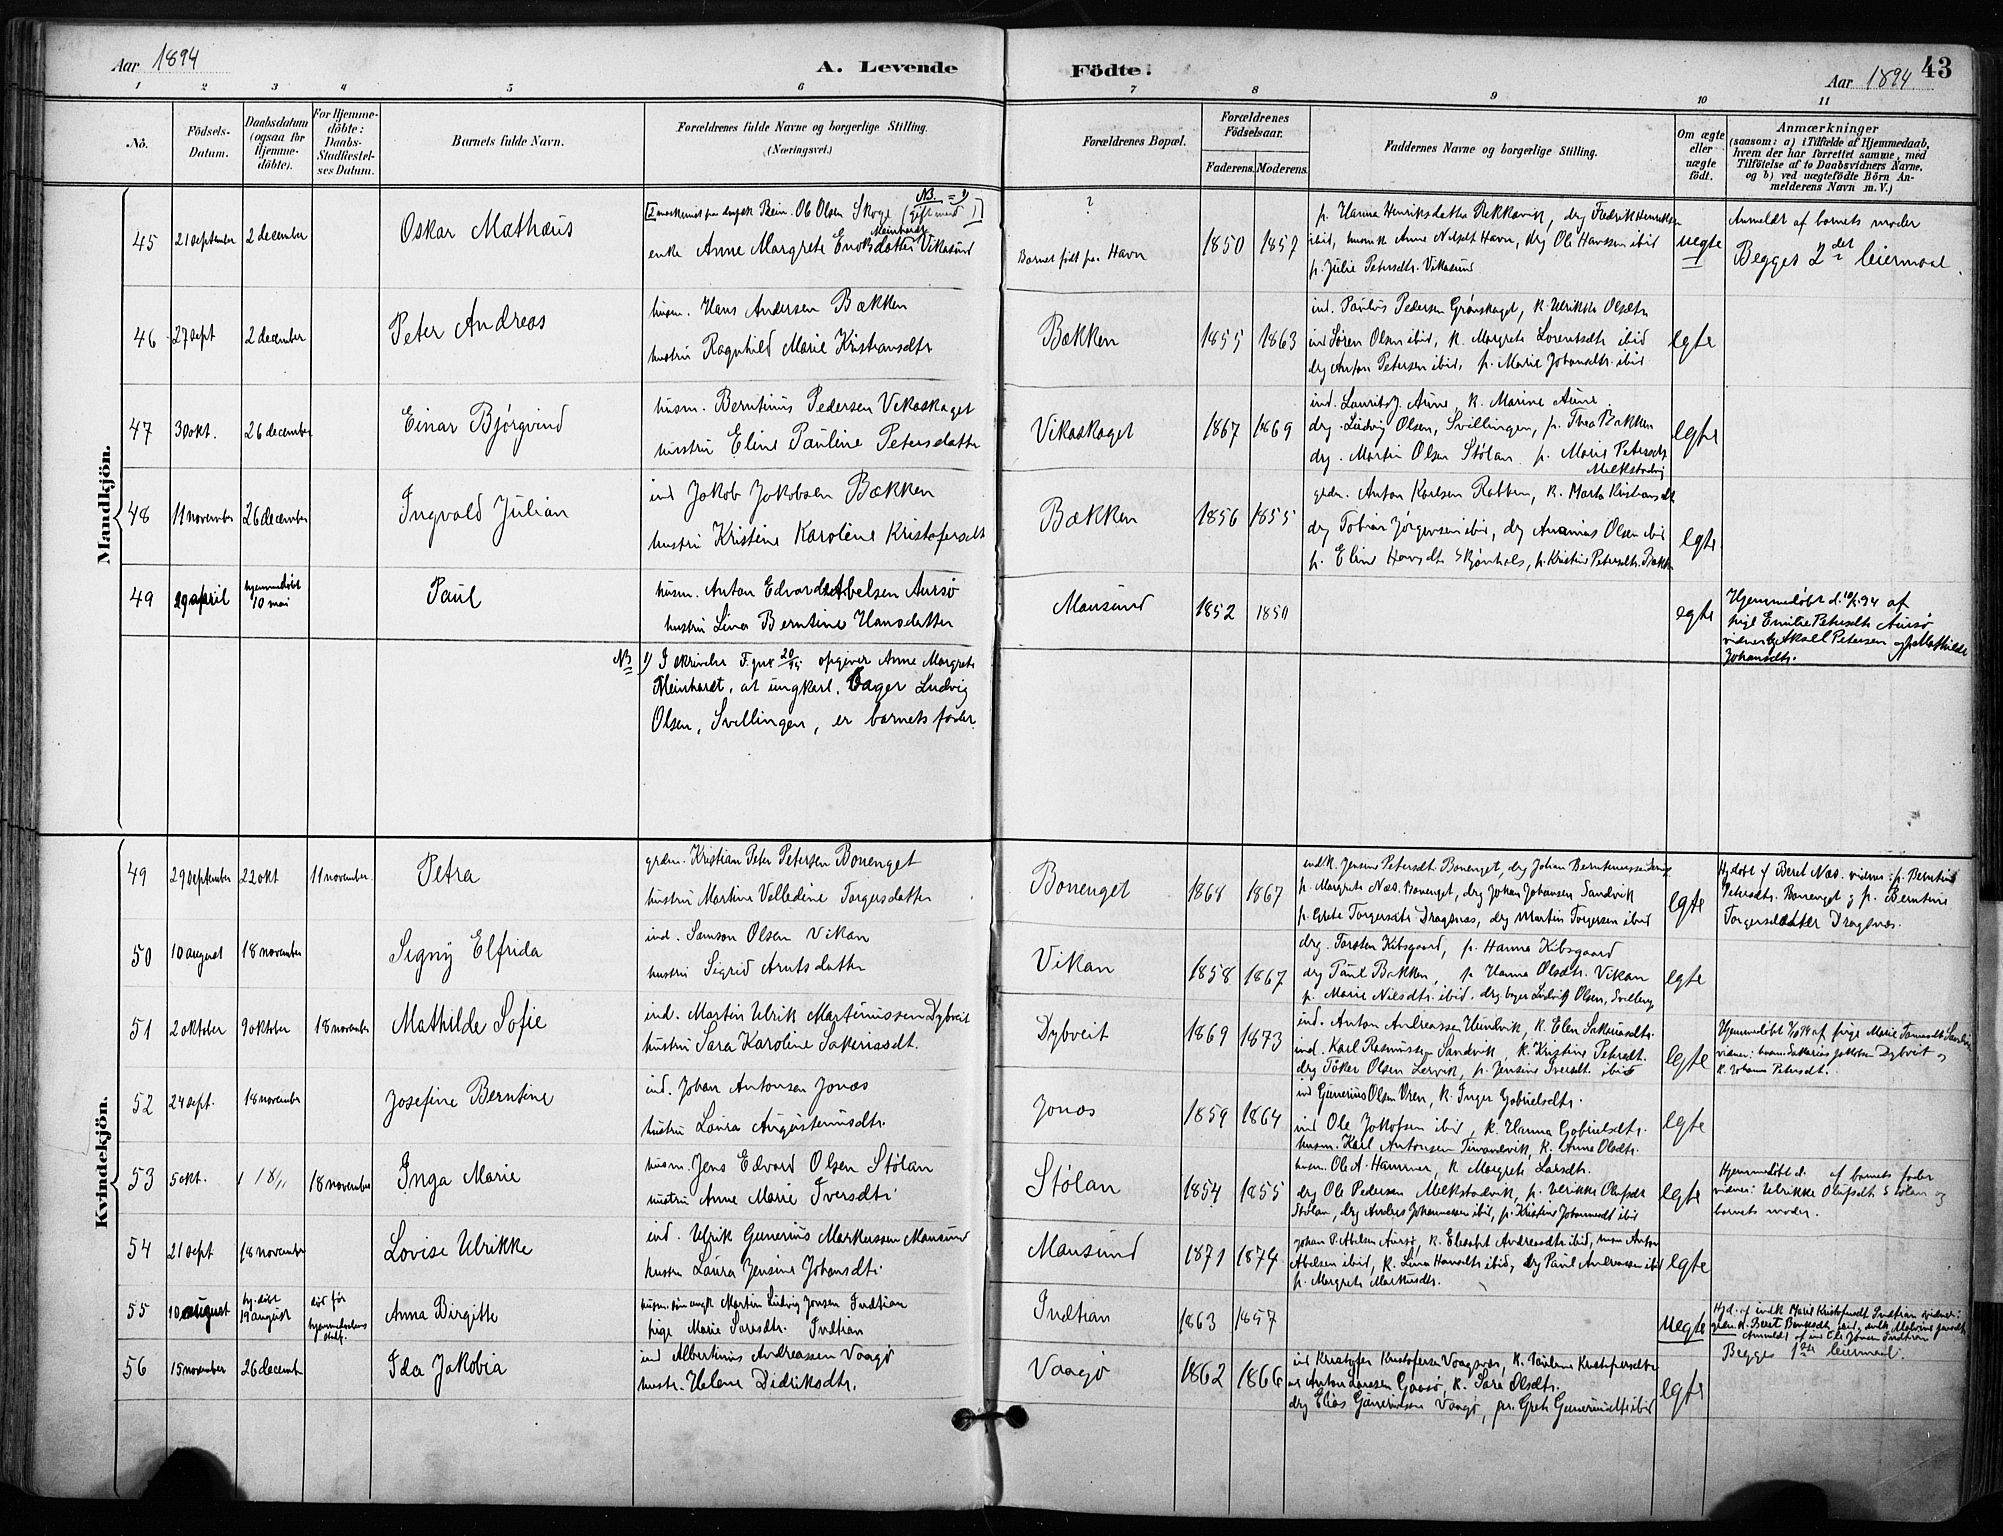 Aar 1894
A. Levende
Födte.
43
Aar 1894.
1 2 3 4 5 6 7 8 9 10 11
No.
Födsels-Datum.
Daabsdatum (ogsaa for Hjemme-döbte).
For Hjemme-döbte: Daabs-Stadfæstel-ses Datum.
Barnets fulde Navn.
Forældrenes fulde Navne og borgerlige Stilling.
(Næringsvei.)
Forældrenes Bopæl.
Forældrenes Födselsaar.
Faderens. Moderens.
Faddernes Navne og borgerlige Stilling.
Om ægte eller uægte födt.
Anmærkninger
(saasom: a) i Tilfælde af Hjemmedaab, hvem der har forrettet samme, med Tilföielse af to Daabsvidners Navne, og b) ved uægtefödte Börn An-melderens Navn m. V.)
Mandkjön.
45 21 september 2 december Oskar Mathæus
NB = 1)
Ole Olsen Skoge (gift mand)
Meinhardt
enke Anne Margrete Enoksdatter Vikasund
?
Barnet født paa Havn
1850 1857
p. Hanna Henriksdatter Rekkavik, drg Fredrik Henriksen
ibid, husmk Anne Nilsdt Havn, drg Ole Hanssen ibid
p. Julie Petersdtr. Vikasund
uegte
Anmeldt af barnets moder
Begges 2det leiermaal.
46 27 sept 2 december Peter Andreas
husm. Hans Andersen Bækken
hustru Ragnhild Marie Kristiansdtr
Bækken 1855 1863
ind. Paulus Pedersen Grønskaget, k. Ulrikke Olsdtr
ind Søren Olsen ibid, k. Margrete Lorentsdtr ibid
drg Anton Petersen ibid, p. Marie Johansdtr. ibid
egte
47 30 okt. 26 december Einar Bjørgvind
husm. Berntinus Pedersen Vikaskaget
hustru Eline Pauline Petersdatter
Vikaskaget 1867 1869
ind. Laurits J. Aune, k. Marine Aune.
drg. Ludvig Olsen, Svillingen, p. Thea Bækken
drg. Martin Olsen Stølan p. Marie Petersdtr
Melkstadvig
egte
48 11 november 26 december Ingvald Julian
ind Jakob Jakobsen Bækken
hustru Kristine Karoline Kristofersdt
Bækken 1856 1855
grdm. Anton Karlsen Rabben, k. Marta Kristiansdt
drg Tobias Jørgensen ibid, drg Ananias Olsen ibid
p. Eline Hansdtr Skjønhals, p. Kristine Petersdtr. Bækken
egte
49 29 april hjemmedøbt 10 mai Paul
husm. Anton Edvard Abelsen Aursø
hustru Lina Berntine Hansdatter
Mausund 1852 1850
egte
Hjemmedøbt d. 10/5 94 af
pige Emilie Petersdtr Aursø
vidner: Aksel Petersen og p. Mathilde
Johansdtr.
NB 1) I skrivelse F. prk 20/95 opgiver Anne Margrete
Meinhardt, at ungkarl, bager Ludvig
Olsen, Svillingen, er barnets fader.
Kvindekjön.
49 29 september 22 okt 11 november Petra
grdm. Kristian Peter Petersen Bonenget
hustru Martine Valledine Torgersdatter
Bonenget 1868 1867
indk. Jensine Petersdt. Bonenget, drg Johan
p. Margrete Næs. Bonenget, drg Johan Johansen Sandvik
p. Grete Torgersdtr Dragsnæs, drg Martin Torgersen ibid
egte
Hj døbt af Beret Næs. vidner: p. Berntine
Petersdtr. Bonenget og p. Berntine
Torgersdatter Dragsnæs.
50 10 august 18 november Signy Elfrida
ind. Samson Olsen Vikan
hustru Sigrid Arntsdatter
Vikan 1858 1867
drg. Torsten Kibsgaard, p. Hanna Kibsgaard
drg Paul Bækken, p. Hanna Olsdtr. Vikan
p. Marie Nilsdtr. ibid. drg bager Ludvik Olsen, Svilling
egte
51 2 oktober 9 oktober 18 november Mathilde Sofie
ind. Martin Ulrik Martinussen Dybveit
hustru Sara Karoline Sakariasdt.
Dybveit 1869 1873
ind. Anton Andreassen Hundvik, k. Elen Sakariasdtr.
ind. Karl Rasmussen Sandvik, k. Kristine Petersdt.
drg Toker Olsen Lervik, p. Jensine Iversdt. ibid
egte
Hjemmedøbt 9/10 94 af pige Marie Tomesdt Sandvik
vidner: husm. Sakarias Jakobsen Dybveit og
k. Johanna Petersdt.
52 24 sept. 18 november Josefine Berntine
ind. Johan Antonsen Jonas
hustru Laura Augustinusdtr.
Jonas 1859 1864
ind Gunerius Olsen Vren, k. Inger Gabrielsdtr.
ind Ole Jakobsen ibid, k. Hanna Gabrielsdtr.
husm. Karl Antonsen Tinandvik, k. Anne Olsdtr.
egte
53 5 okt. 18 november Inga Marie
husm. Jens Edvard Olsen Stølan
hustru Anne Marie Iversdtr
Stølan 1854 1855
husm. Ole A. Hammer, k. Margrete Larsdtr.
drg Ole Pedersen Melkstadvik, p. Ulrikke Olufsdt
Stølan, drg Anders Johannessen ibid, p. Kristine Johannesdt ibid
egte
Hjemmedøbt d. af barnets fader
vidner: Ulrikke Olufsdt Stølan og
barnets moder.
54 21 sept 18 november Lovise Ulrikke
ind. Ulrik Gunerius Markussen Mausund
hustru Laura Jensine Johansdtr
Mausund 1871 1874
Johan P. Abelsen Aursø, k. Elisabet Andreasdtr ibid, husm Anton
Abelsen ibid, k. Lina Hansdtr ibid, drg Paul Andreassen ibid
p. Margrete Markusdtr.
egte
55 10 august hj. døbt 19 august død før hjemmedaabens stadf. Anna Birgitte
husm. søn ungk Martin Ludvig Jonsen Indtian
pige Marie Larsdtr. Indtian
Indtian 1863 1857
uegte
Hjd. af indk Marie Kristofersdt Indtian vidner:
Anmeldt af ind Ole Jonsen Indtian
Begges 1ste leiermaal.
56 15 november 26 decemb Ida Jakobia
ind Albertinus Andreassen Vaagø
hustr. Helene Didriksdtr.
Vaagø 1862 1866
ind Kristofer Kristofersen Vaagsvær, k. Pauline Kristofersdtr
ind Anton Larsen Gaasø, k. Sara Olsdtr.
drg Elias Guneriussen Vaagø, p. Grete Guneriusdtr ibid
egte